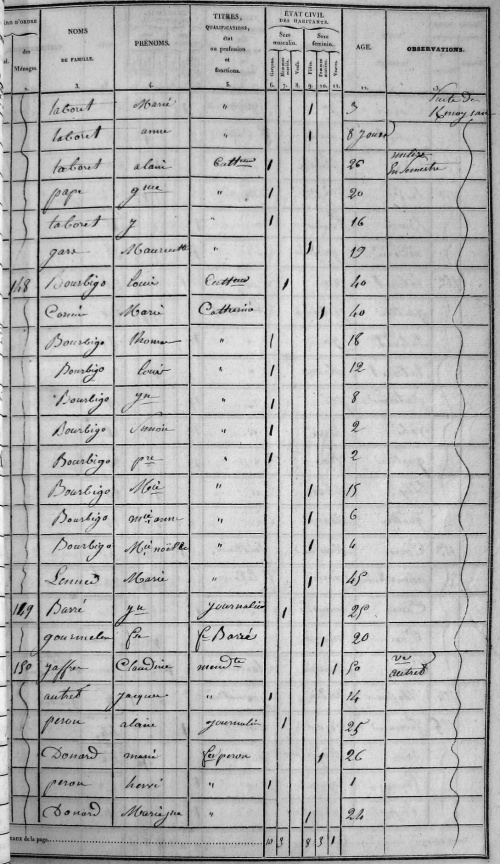 ÉTAT CIVIL DES HABITANTS.
NOMS DE FAMILLE. PRÉNOMS. TITRES, QUALIFICATIONS, état ou profession et fonctions. Sexe masculin. Sexe féminin. AGE. OBSERVATIONS.
des Ménages. Garçons. Hommes mariés. Veufs. Filles. Femmes mariées. Veuves.
3. 4. 5. 6. 7. 8. 9. 10. 11.
taboret Marie " 1 3 Suite de
taboret anne " 1 8 jours
taboret alain Cultteur 1 26
pape gme " 1 20
taboret y " 1 16
gars Mauricette " 1 19
148 Bourbigo louis Cultteur 1 40
Marie Catherine 1 40
Bourbigo Thomas " 1 18
Bourbigo louis " 1 12
Bourbigo yn " 1 8
Bourbigo Simon " 1 2
Bourbigo pre " 1 2
Bourbigo Mie " 1 15
Bourbigo mie anne " 1 6
Bourbigo Mie noëlle 1 4
Marie " 1 45
149 Barré yn journalier 1 25
gourmelen fe Barré 1 20
150 Claudine mendte 1 50 ve autret
autret jacques " 1 14
peron alain journalier 1 25
Donard marie fe peron 1 26
peron hervé " 1 1
Donard Marie jne " 1 24
de la page 10 3 8 3 1